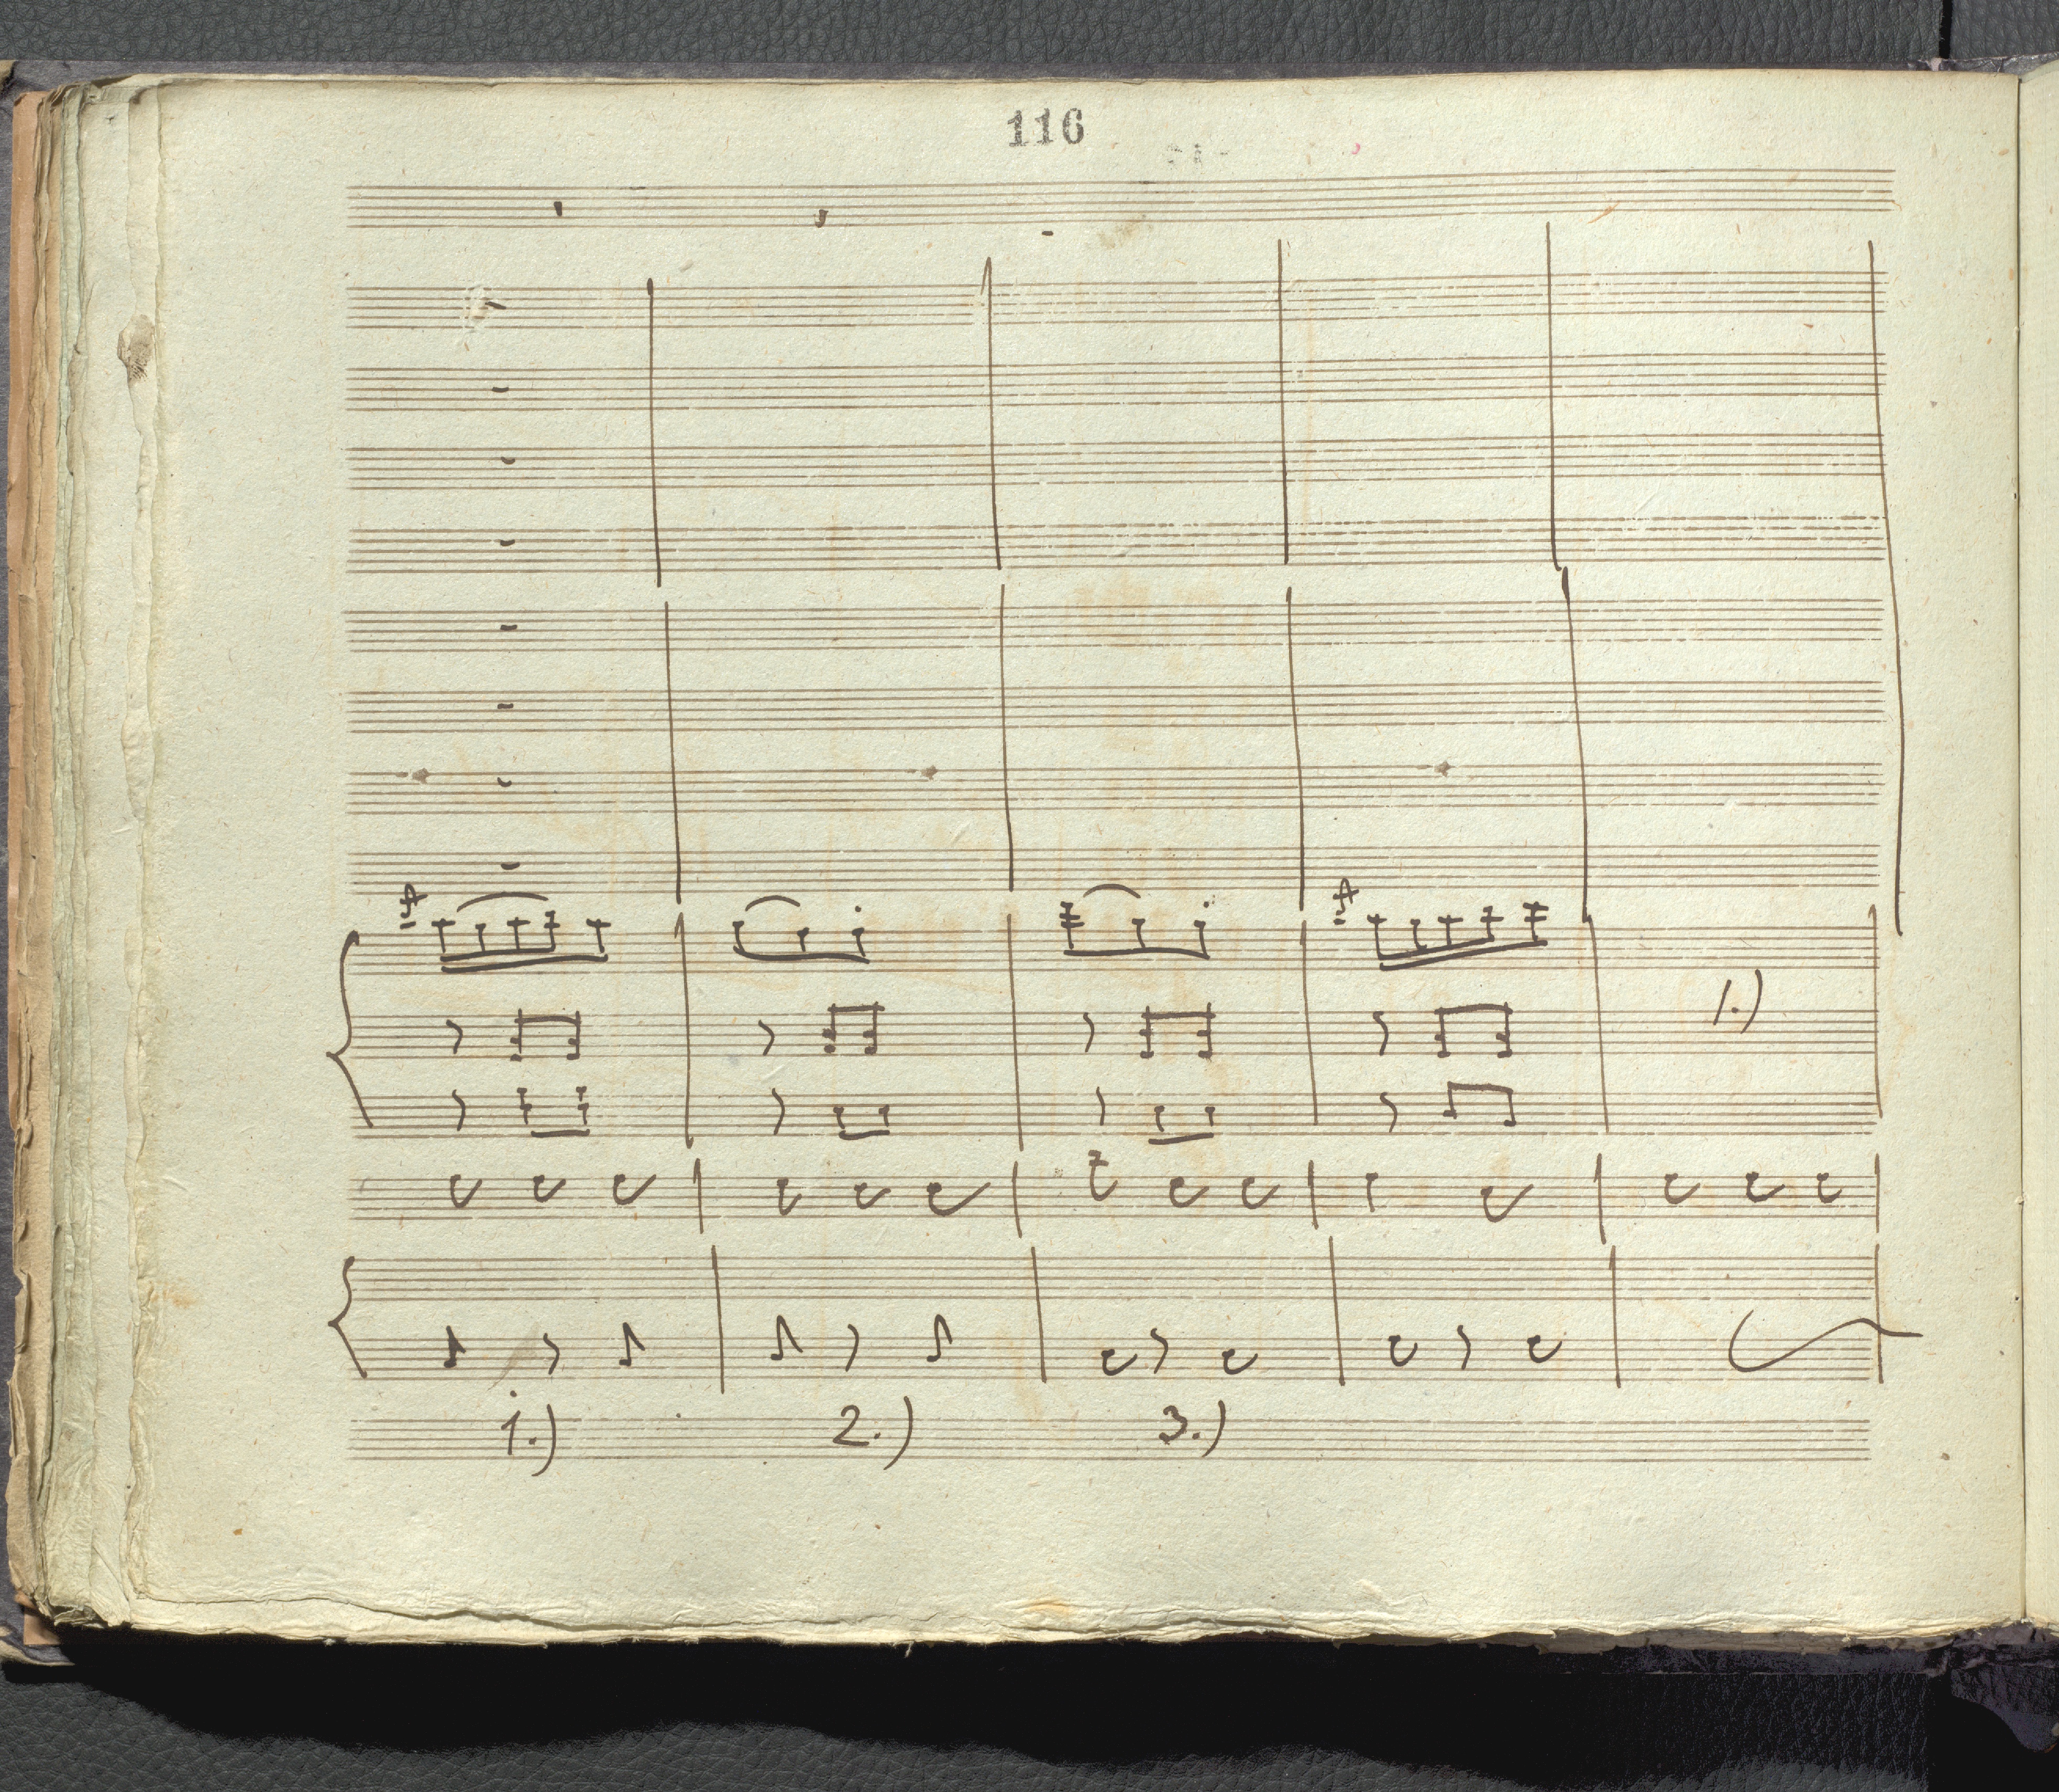 116
1.)
1.) 2.) 3.)